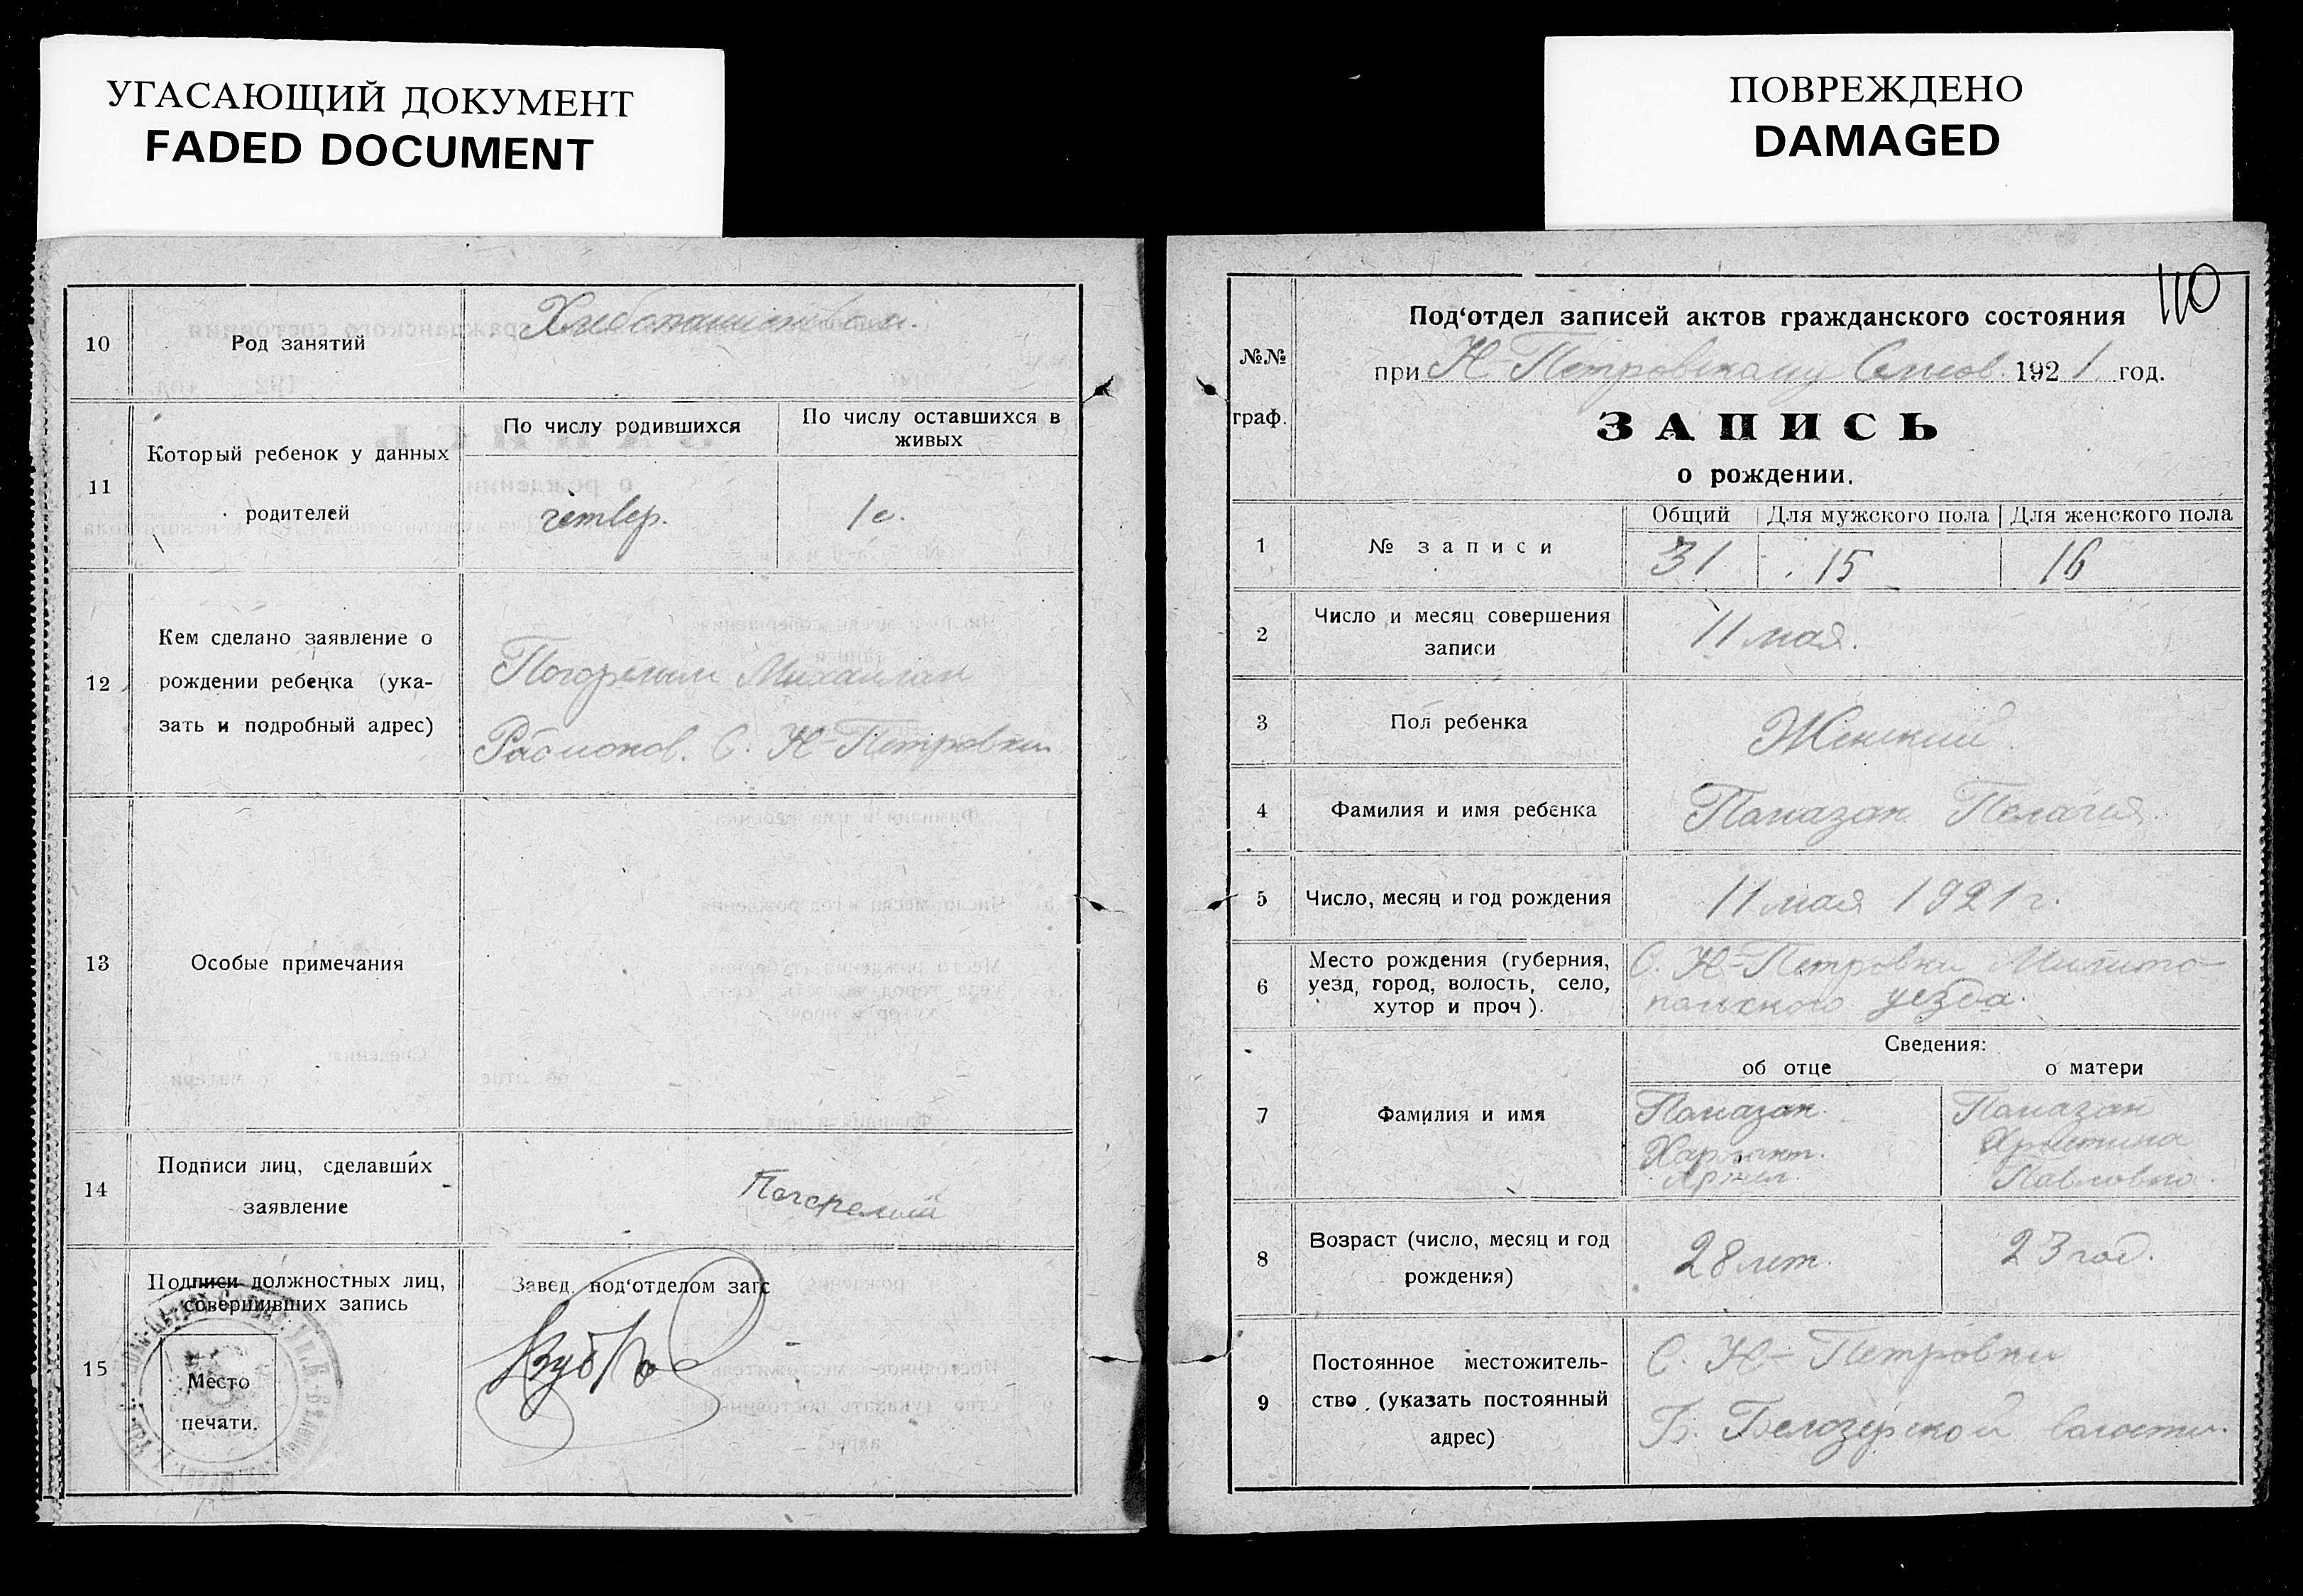 УГАСАЮЩИЙ ДОКУМЕНТ
FADED DOCUMENT
10
Род занятий
11
Который ребенок у данных
родителей
По числу родившихся
По числу оставшихся в
живых
четвер.
1е.
12
Кем сделано заявление о
рождении ребенка (ука-
зать и подробный адрес)
Погорелым Михаилом
С. Н-Петровки
13
Особые примечания
14
Подписи лиц, сделавших
заявление
Погорелий
15
Подписи должностных лиц,
совершивших запись
Место
печати.
Завед. под‘отделом загс
ПОВРЕЖДЕНО
DAMAGED
110
№№
граф.
Под‘отдел записей актов гражданского состояния
при Н-Петровскому 1921 год.
ЗАПИСЬ
о рождении.
1
№ записи
Общий
Для мужского пола
Для женского пола
31
15
16
2
Число и месяц совершения
записи
11 мая.
3
Пол ребенка
Женский
4
Фамилия и имя ребенка
Памазан Пелагия
5
Число, месяц и год рождения
11 мая 1921 г.
6
Место рождения (губерния,
уезд, город, волость, село,
хутор и проч).
С. Н-Петровки Мелито-
польского уезда.
Сведения:
об отце
о матери
7
Фамилия и имя
Памазан
Памазан
Христина
Павловна
8
Возраст (число, месяц и год
рождения)
28 лет.
23 год.
9
Постоянное местожитель-
ство (указать постоянный
адрес)
С. Н-Петровки
Б. Белозерской волости.